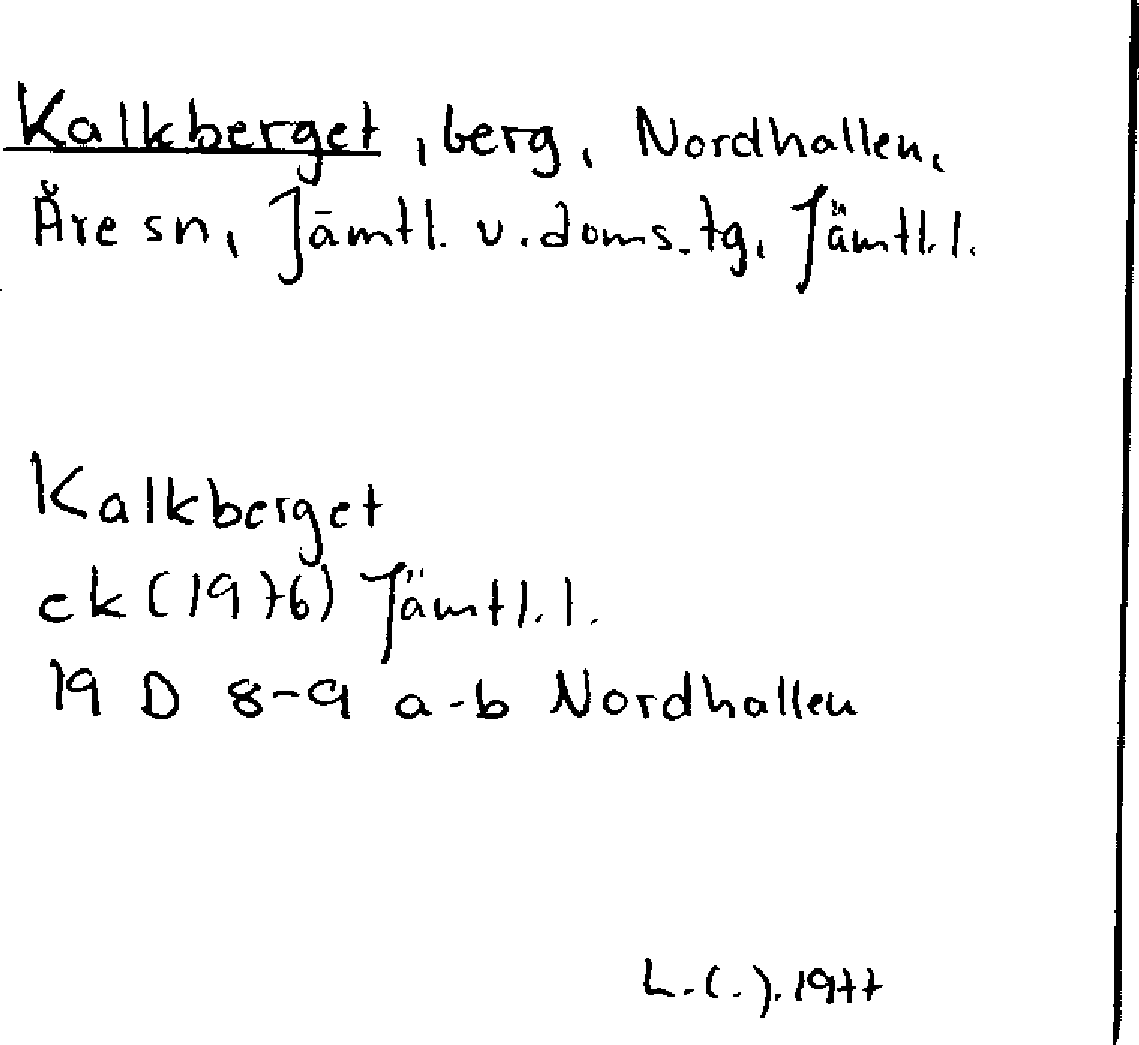 Kalkberget, berg, Nordhallen,
Åre sn, Jämtl. v. doms. tg, Jämtl. l.
Kalkberget
ek (1976) Jämtl. l.
19 D 8-9 a-b Nordhallen
L.(.). 1977